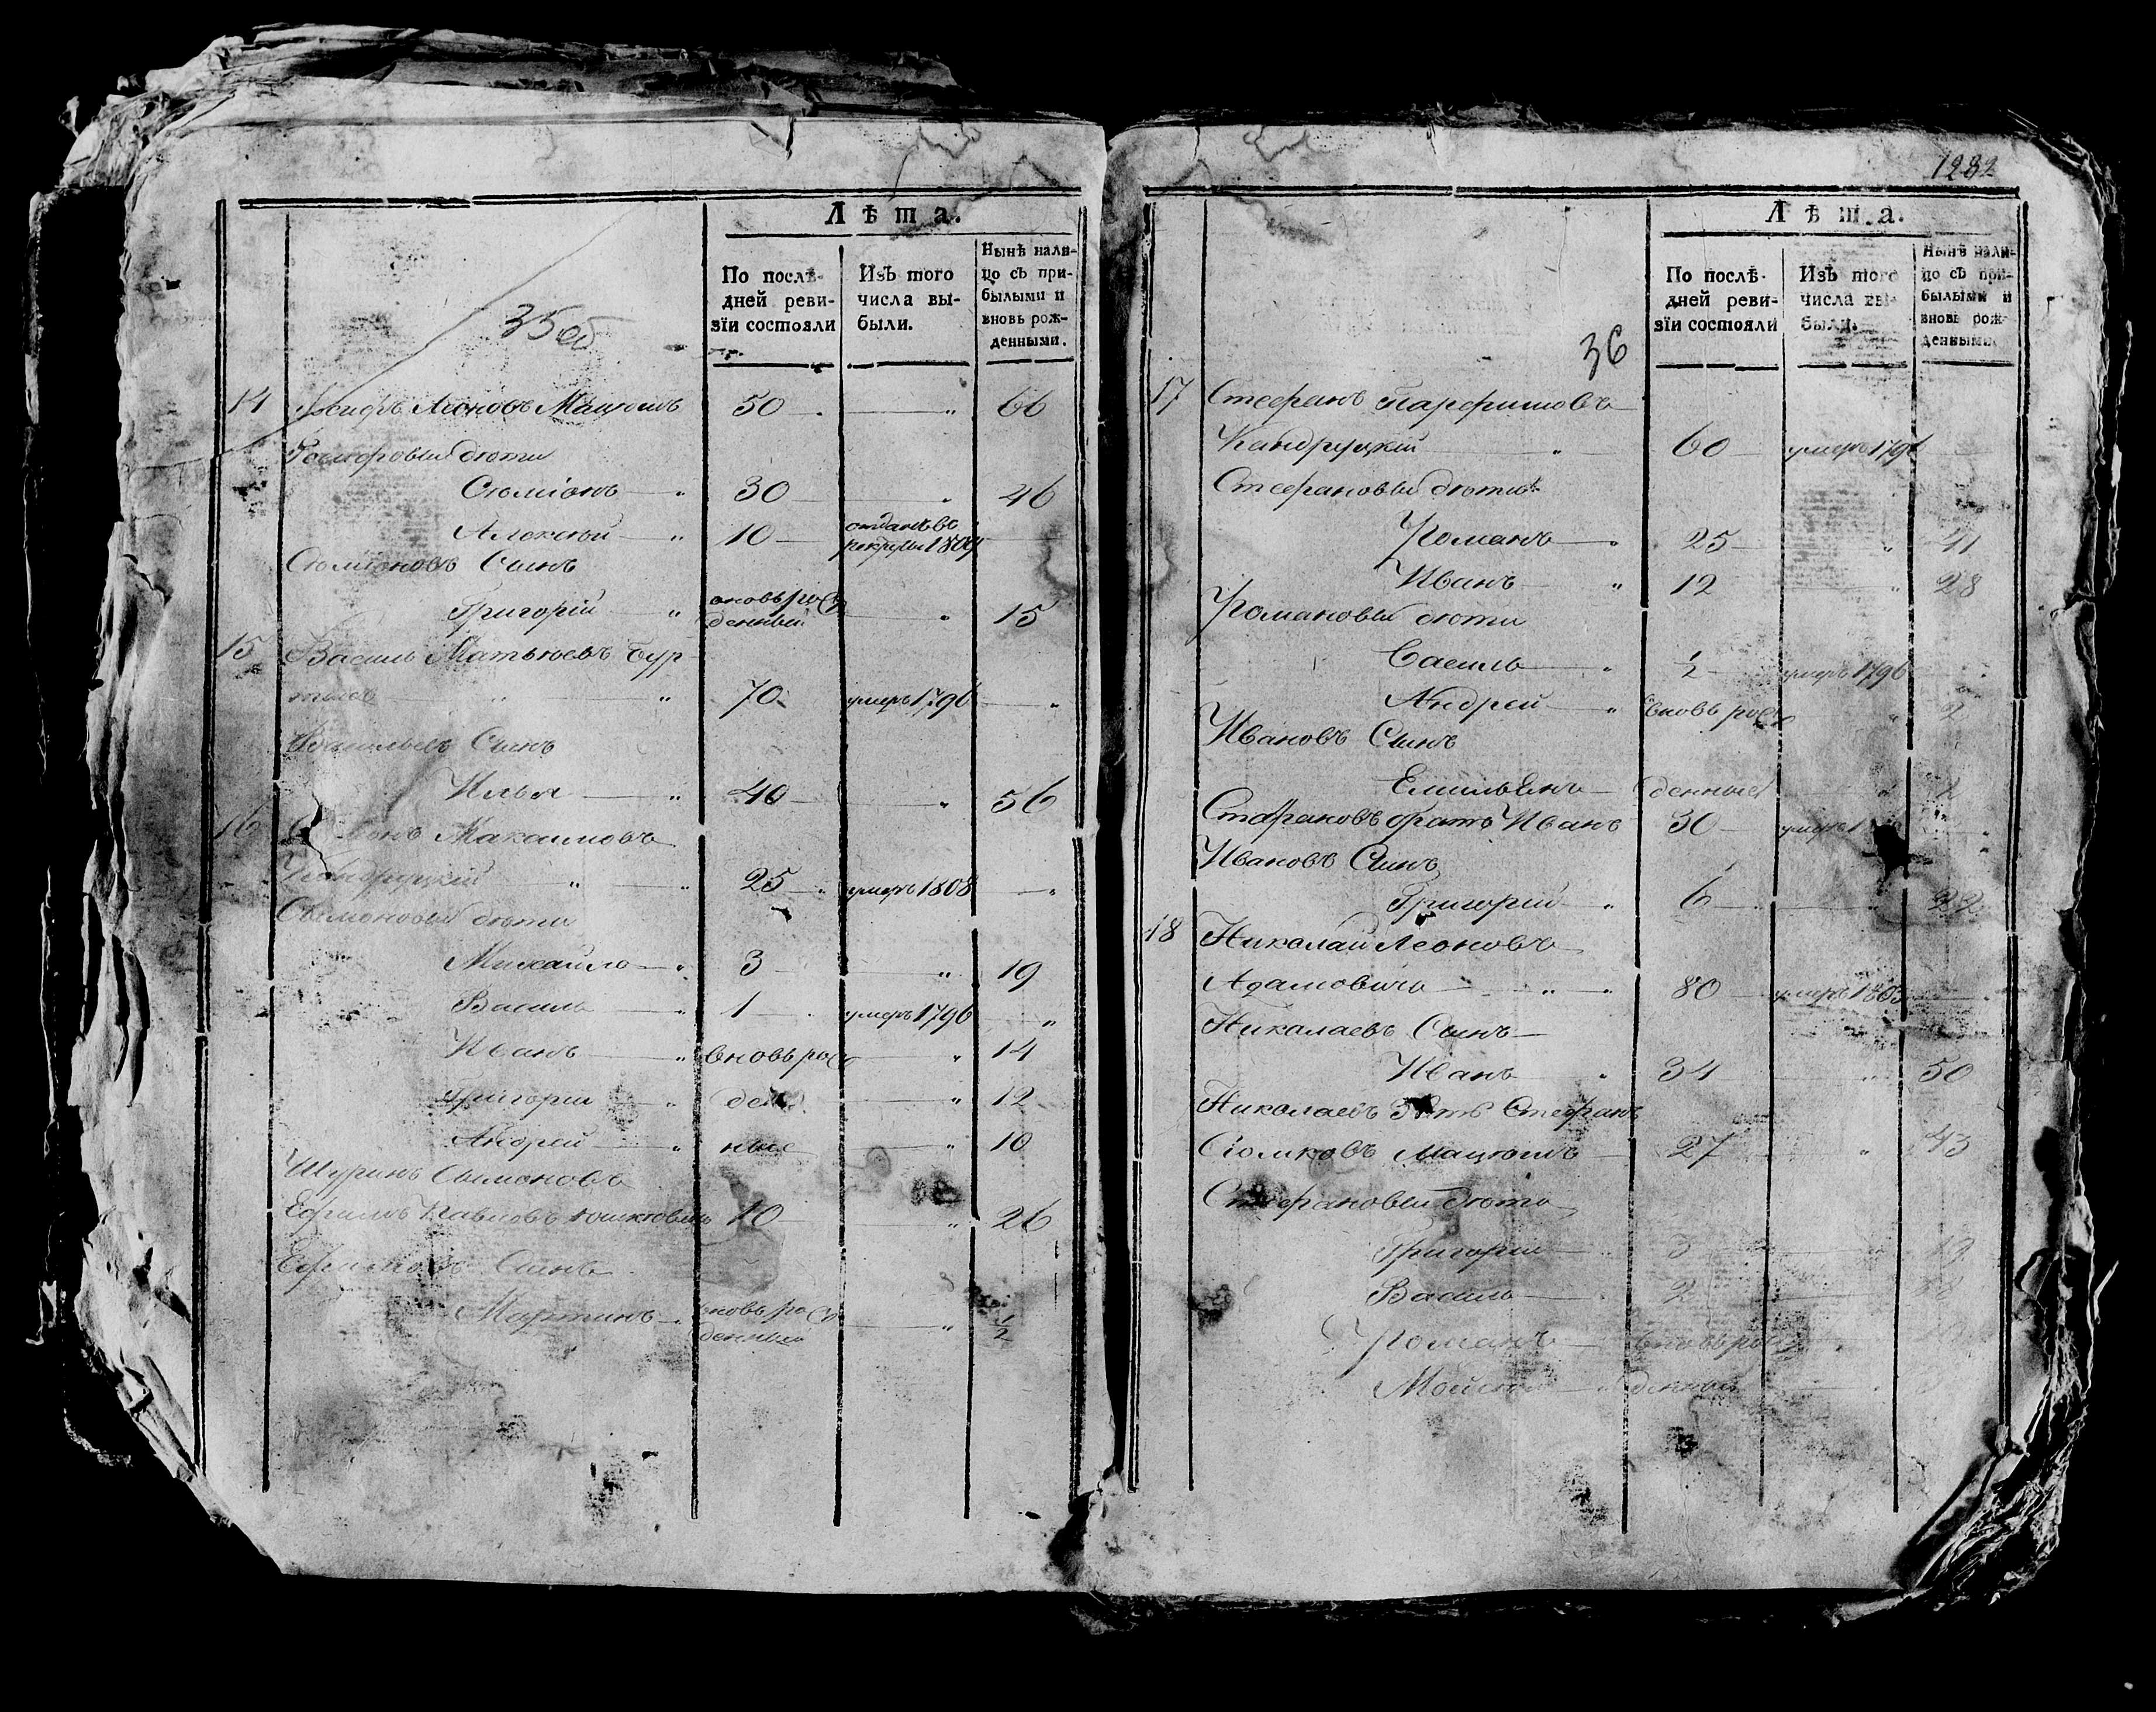 Лѣта.
По послѣ-
дней реви-
зїи состояли
Изъ того
числа вы-
были.
Нынѣ нали-
цо съ при-
былыми и
вновь рож-
денными.
35об
14 Леоновъ Мацюшъ 50 66
дѣти
Сѣмїонъ 30 46
Алексѣй 10 отданъ во
рекруты 1809
Сѣмїоновъ Сынъ
Григорїй вновь рож
денный 15
15 Василь Матьѣевъ Бур-
70 умеръ 1796
Васильевъ Сынъ
Илья 40 56
16 Максимовъ
Кандруцкїй 25 умеръ 1808
Сымоновы дѣти
Михайло 3 19
Василь 1 умеръ 1796
Иванъ вновь рож 14
Григорїй ден 12
Андрей ные 10
Шуринъ Сымоновъ
Ефимъ Павловъ 10 26
Ефимовъ Сынъ
Мартинъ вновь рож
денный 1/2
1282
Лѣта.
По послѣ-
дней реви-
зїи состояли
Изъ того
числа вы-
были.
Нынѣ нали-
цо съ при-
былыми и
вновь рож-
денными.
36
17 Стефанъ Парфимовъ
Кандруцкїй 60 умеръ 1796
Стефановы дѣти
Романъ 25 41
Иванъ 12 28
Романовы дѣти
Василь 1/2 умеръ 1796
Андрей вновь рож 2
Ивановъ Сынъ
Емильянъ денные 2
Стефановъ братъ Иванъ 30 умеръ 1
Ивановъ Сынъ
Григорїй 6 22
18 Николай Леоновъ
Адамовичъ 80 умеръ 1805
Николаевъ Сынъ
Иванъ 34 50
Николаевъ Зять Стефанъ
Сѣмковъ Мацюшъ 27 43
Стефановы дѣти
Григорїй 3 19
Василь 2 18
Романъ вновь рож
Мойсѣй денные